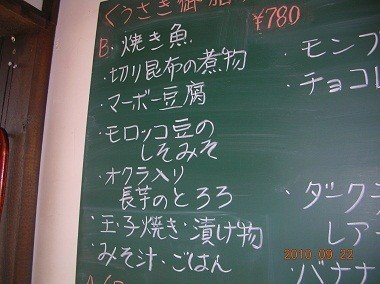 ¥780
B. 焼き魚
・切り昆布の煮物
・マーボー豆腐
・モロッコ豆の
しそみそ
・オクラ入り
長芋のとろろ
・玉子焼き・漬け物
・みそ汁・ごはん
・モンブ
・チョコレ
・ダークラ
レアー
・バナナ
2010 09 22